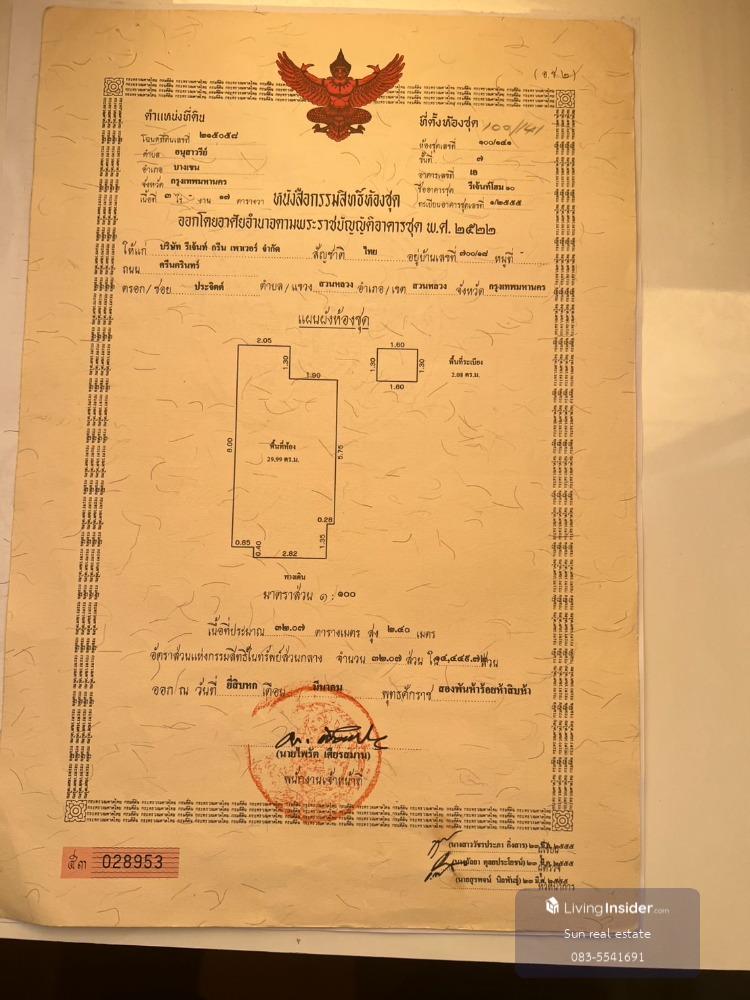 (อ.ช.๒)
ตำแหน่งที่ดิน
โฉนดที่ดินเลขที่ ๒๑๕๐๕๘
ตำบล อนุสาวรีย์
อำเภอ บางเขน
จังหวัด กรุงเทพมหานคร
เนื้อที่ ๓ ไร่ - งาน ๑๗ ตารางวา
ที่ตั้งห้องชุด 100/141
ห้องชุดเลขที่ ๑๐๐/๑๔๑
ชั้นที่ ๗
อาคารเลขที่ เอ
ชื่ออาคารชุด รีเจ้นท์โฮม ๑๐
ทะเบียนอาคารชุดเลขที่ ๑/๒๕๕๕
หนังสือกรรมสิทธิ์ห้องชุด
ออกโดยอาศัยอำนาจตามพระราชบัญญัติอาคารชุด พ.ศ. ๒๕๒๒
ให้แก่ บริษัท รีเจ้นท์ กรีน เพาเวอร์ จำกัด สัญชาติ ไทย อยู่บ้านเลขที่ ๗๐๐/๑๘ หมู่ที่ -
ถนน ศรีนครินทร์
ตรอก/ซอย ประจิตต์ ตำบล/แขวง สวนหลวง อำเภอ/เขต สวนหลวง จังหวัด กรุงเทพมหานคร
แผนผังห้องชุด
2.05
1.30
1.90
8.00
พื้นที่ห้อง
29.99 ตร.ม.
5.75
0.28
1.35
0.85
0.40
2.82
1.60
1.30
1.30
1.60
พื้นที่ระเบียง
2.08 ตร.ม.
ทางเดิน
มาตราส่วน ๑ : ๑๐๐
เนื้อที่ประมาณ ๓๒.๐๗ ตารางเมตร สูง ๒.๔๐ เมตร
อัตราส่วนแห่งกรรมสิทธิ์ในทรัพย์ส่วนกลาง จำนวน ๓๒.๐๗ ส่วน ใน ส่วน
ออก ณ วันที่ ยี่สิบหก เดือน มีนาคม พุทธศักราช สองพันห้าร้อยห้าสิบห้า
(นายไพรัต เศียรสมาน)
พนักงานเจ้าหน้าที่
028953
(นางสาววัชรประภา กิ่งสาร) ๒๓ มี.ค. ๒๕๕๕
๒๓ มี.ค. ๒๕๕๕
(นายสุรพจน์ นิลพันธุ์) ๒๓ มี.ค. ๒๕๕๕
หัวหน้าการ
LivingInsider.com
Sun real estate
083-5541691